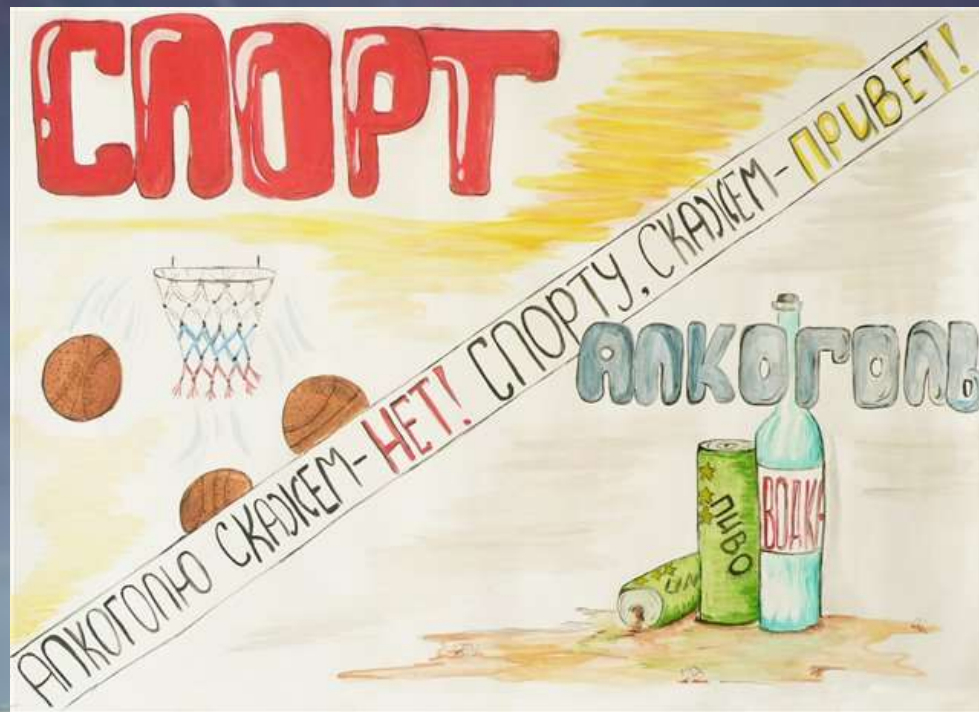 СПОРТ
АЛКОГОЛЮ СКАЖЕМ- НЕТ! СПОРТУ, СКАЖЕМ- ПРИВЕТ!
АЛКОГОЛЬ
ПИВО
ВОДКА